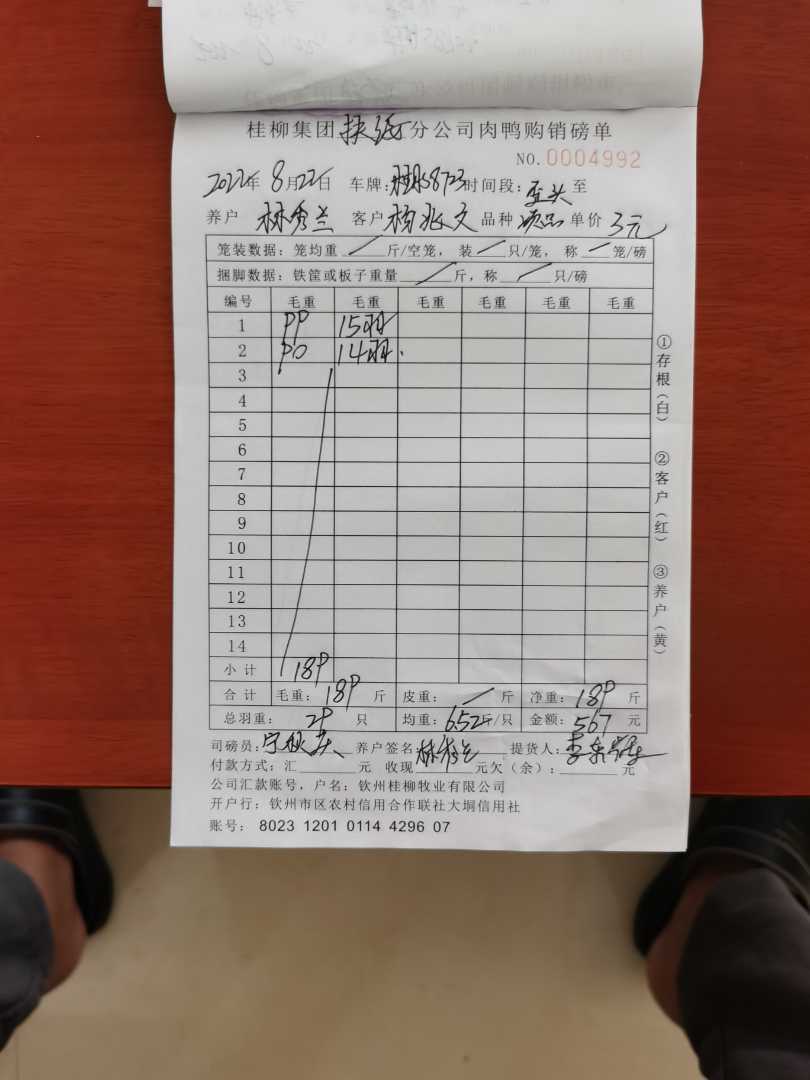 桂柳集团扶绥分公司肉鸭购销磅单
NO.0004992
2022年8月22日 车牌:桂 58723 时间段: 至
养户 林秀兰 客户 杨兆文 品种 次品 单价 3元
笼装数据：笼均重 / 斤/空笼，装 / 只/笼，称 / 笼/磅
捆脚数据：铁筐或板子重量 / 斤，称 / 只/磅
编号 毛重 毛重 毛重 毛重 毛重 毛重
1 15羽
2 14羽.
3
4
5
6
7
8
9
10
11
12
13
14
小计
合计 毛重： 斤 皮重： / 斤 净重： 斤
总羽重： 只 均重：6.52斤/只 金额：567 元
司磅员： 养户签名 林秀兰 提货人：
付款方式：汇 元 收现 元欠（余）： 元
公司汇款账号，户名：钦州桂柳牧业有限公司
开户行：钦州市区农村信用合作联社大垌信用社
账号： 8023 1201 0114 4296 07
①存根（白）
②客户（红）
③养户（黄）